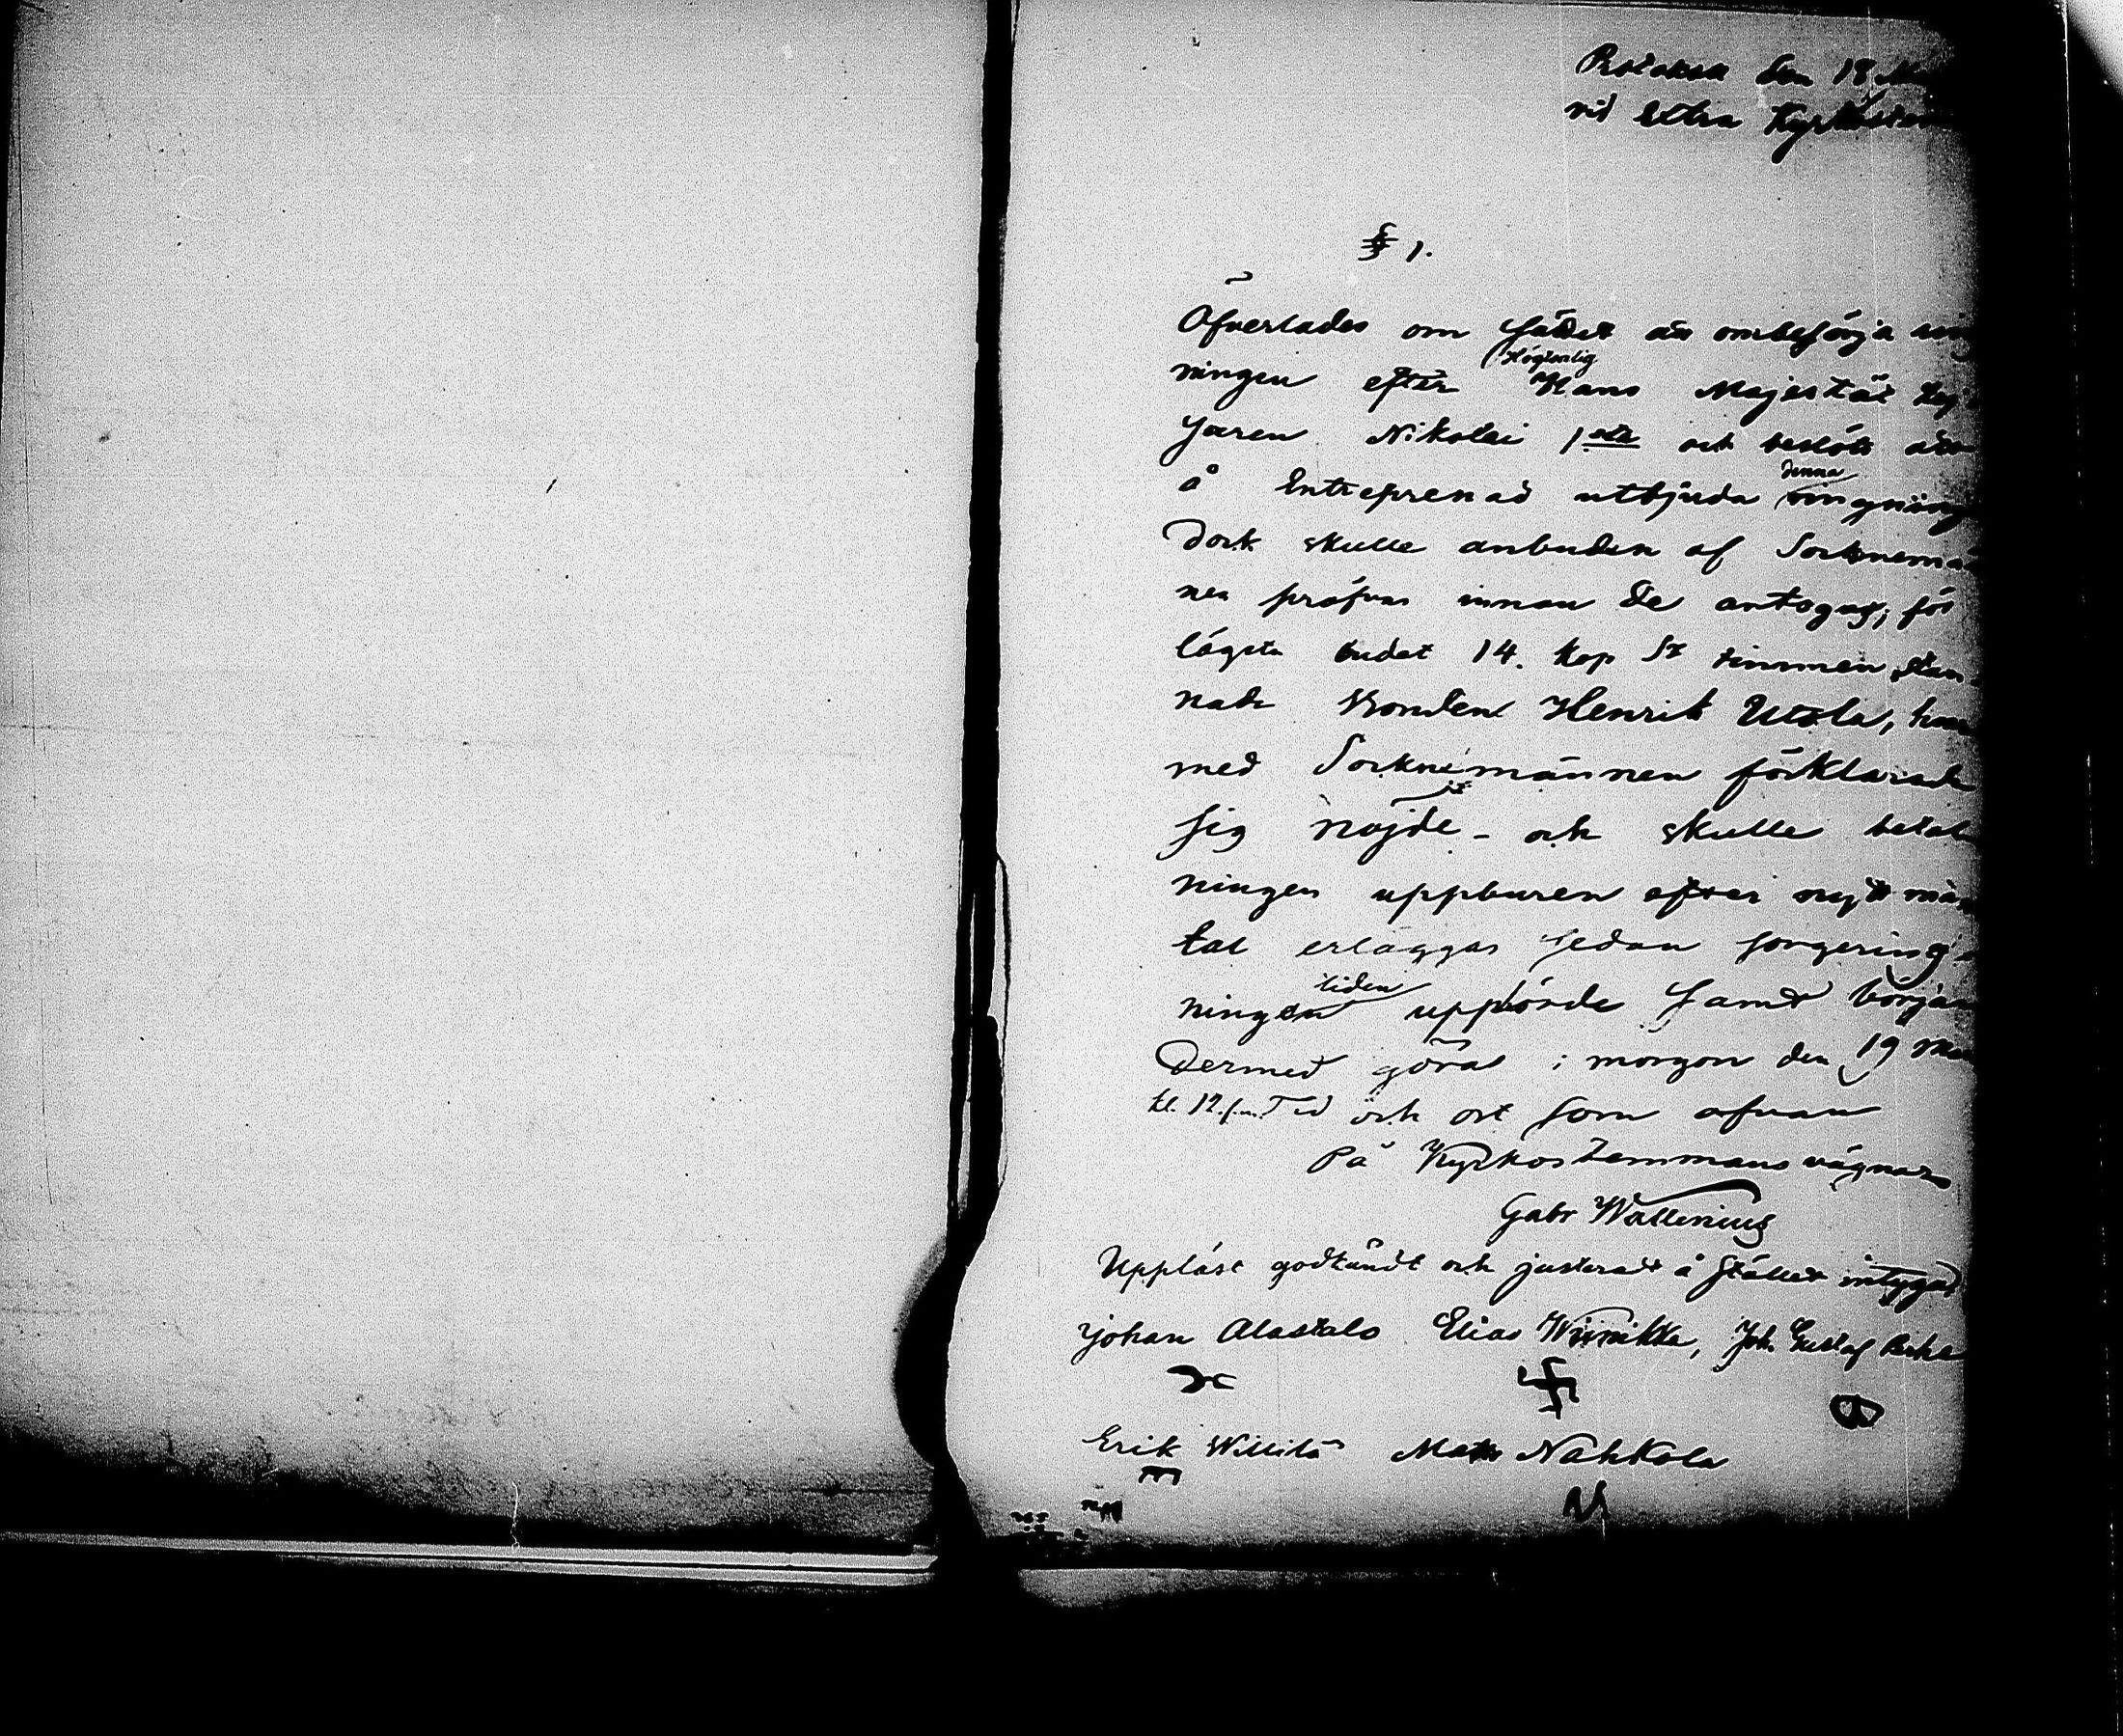 Protokoll den 18 Ma
vid Extra Kyrkostäm
§ 1.
Öfverlades om sättet att ombesörja ring
ningen efter Högtsalig Hans Majestät Kej
saren Nikolai 1sta och beslöts att
å Entreprenad utbjuda denna ringning
dock skulle anbuden af Socknemän
nen pröfvas innan de antogus; för
lägsta budet 14. kop Sr timmen stan-
nade Bonden Henrik Utola, hvar
med Socknemännen förklarade
sig nöjde - och skulle betal
ningen uppburen efter nytt man
tal erläggas sedan sorgering
ningen tiden upphörde samt början
dermed göras i morgon den 19 Mar
kl. 12. f.m. Tid och ort som ofvan
På Kyrkostemmans vägnar
Gabr Wallenius
Uppläst godkändt och justeradt å stället intyga
Johan Alastalo Elias Wiinikka, Joh. Gustaf
Erik Willilä Matts Nahkola